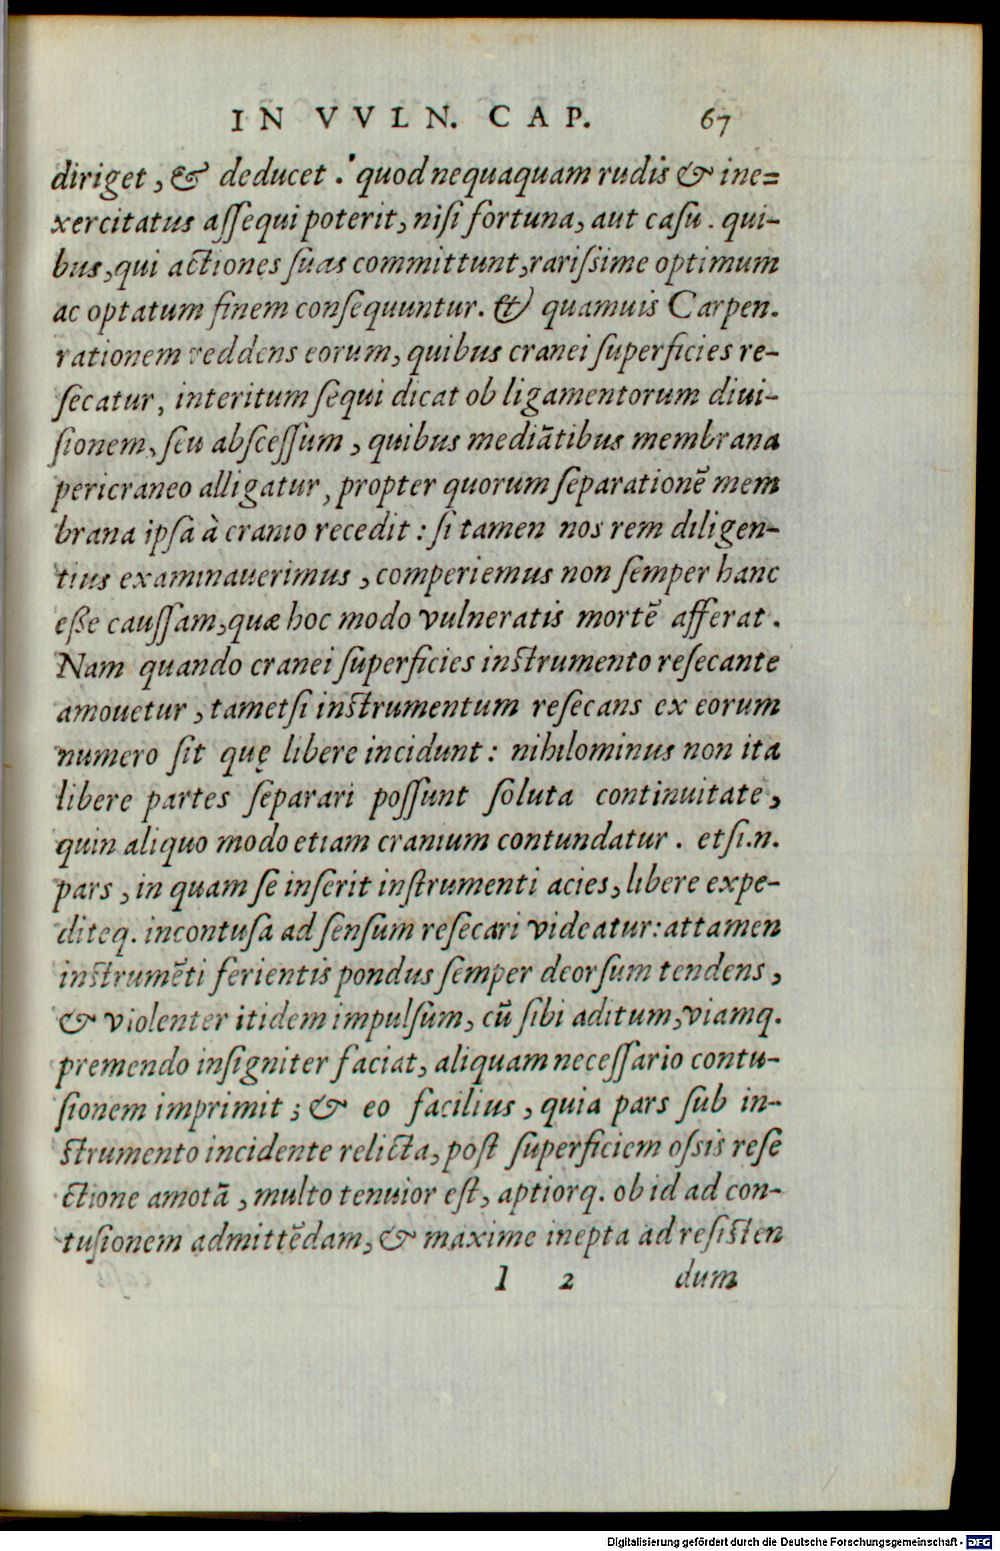 IN VVLN. CAP. 67
diriget, & deducet. quod nequaquam rudis & ine=
xercitatus aſſequi poterit, niſi fortuna, aut caſu. qui-
bus, qui actiones ſuas committunt, rariſsime optimum
ac optatum finem conſequuntur. & quamuis Carpen.
rationem reddens eorum, quibus cranei ſuperficies re-
ſecatur, interitum ſequi dicat ob ligamentorum diui-
ſionem, ſeu abſceſſum, quibus mediãtibus membrana
pericraneo alligatur, propter quorum ſeparationẽ mem
brana ipſa à cranio recedit: ſi tamen nos rem diligen-
tius examinauerimus, comperiemus non ſemper hanc
eße cauſſam, quæ hoc modo vulneratis mortẽ afferat.
Nam quando cranei ſuperficies inſtrumento reſecante
amouetur, tametſi inſtrumentum reſecans ex eorum
numero ſit quę libere incidunt: nihilominus non ita
libere partes ſeparari poſſunt ſoluta continuitate,
quin aliquo modo etiam cranium contundatur. etſi.n.
pars, in quam ſe inſerit inſtrumenti acies, libere expe-
diteq. incontuſa ad ſenſum reſecari videatur: attamen
inſtrumẽti ferientis pondus ſemper deorſum tendens,
& violenter itidem impulſum, cũ ſibi aditum, viamq.
premendo inſigniter faciat, aliquam neceſſario contu-
ſionem imprimit; & eo facilius, quia pars ſub in-
ſtrumento incidente relicta, poſt ſuperficiem oſsis reſe
ctione amotã, multo tenuior eſt, aptiorq. ob id ad con-
tuſionem admittẽdam, & maxime inepta ad reſiſten
l 2 dum
Digitalisierung gefördert durch die Deutsche Forschungsgemeinschaft - DFG